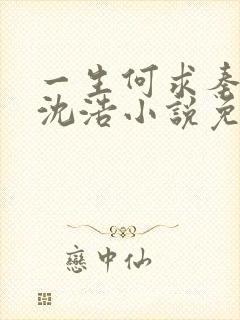 一生何求秦
沈浩小說免
戀中仙